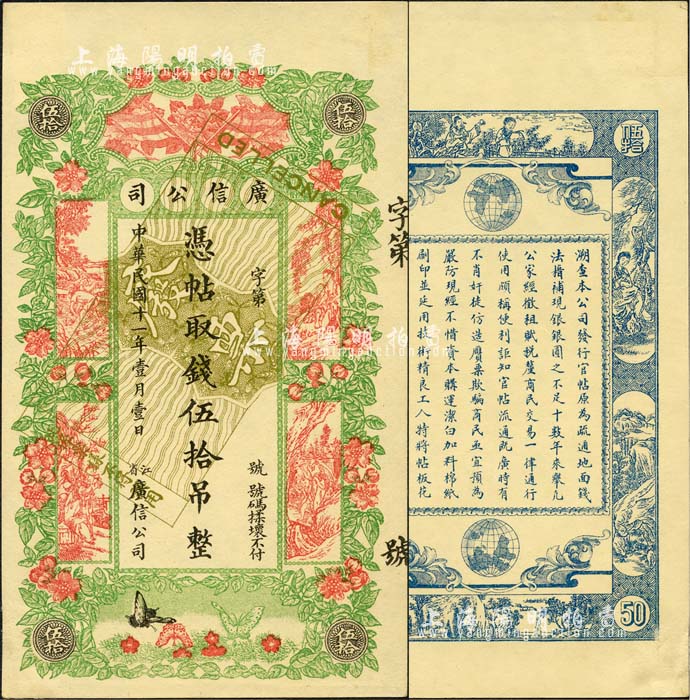 上海陽明拍賣
www.yangmingauction.com
伍拾
伍拾
CANCELLED
廣信公司
字第
號 號碼揉壞不付
憑帖取錢伍拾吊整
中華民國十一年壹月壹日
江省 廣信公司
上海陽明拍賣
www.yangmingauction.com
伍拾
伍拾
字第
號
伍拾
溯查本公司發行官帖原為疏通地面錢
法搘補現銀銀圓之不足十數年來舉凡
公家經徵租賦稅釐商民交易一律通行
使用頗稱便利詎知官帖流通既廣時有
不肖奸徒仿造贋票欺騙商民亟宜預為
嚴防現經不惜資本購運潔白加料棉紙
刷印並延用技術精良工人特將帖板花
上海陽明拍賣
www.yangmingauction.com
50